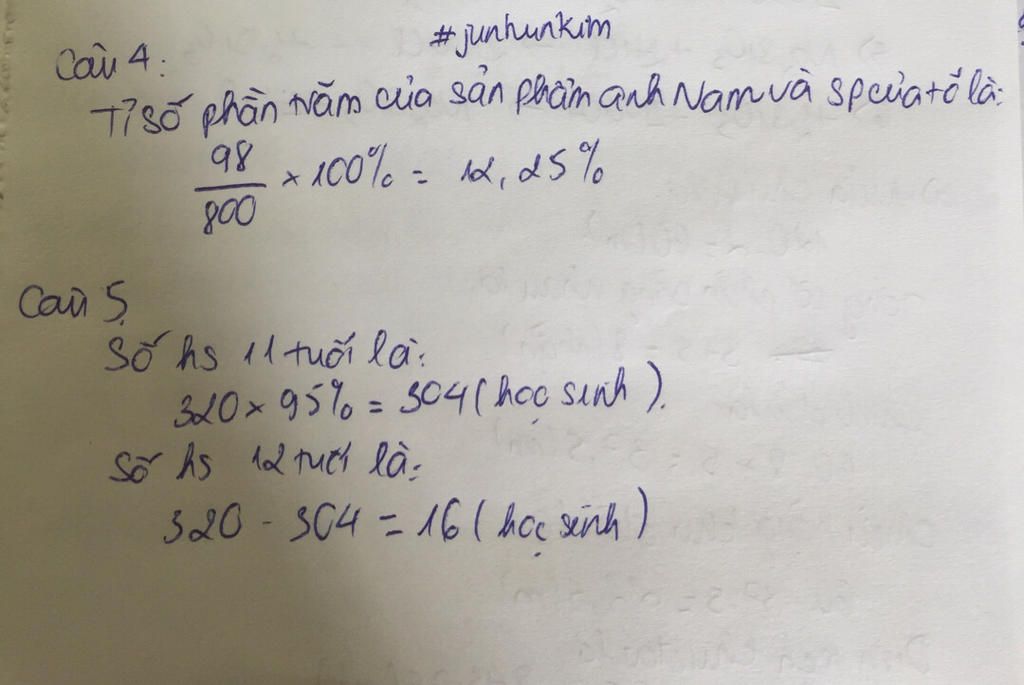 #junhunkim
Câu 4:
Tỉ số phần trăm của sản phẩm anh Nam và sp của tổ là:
98/800 × 100% = 12,25%
Câu 5.
Số hs 11 tuổi là:
320 × 95% = 304 (học sinh).
Số hs 12 tuổi là:
320 - 304 = 16 (học sinh)